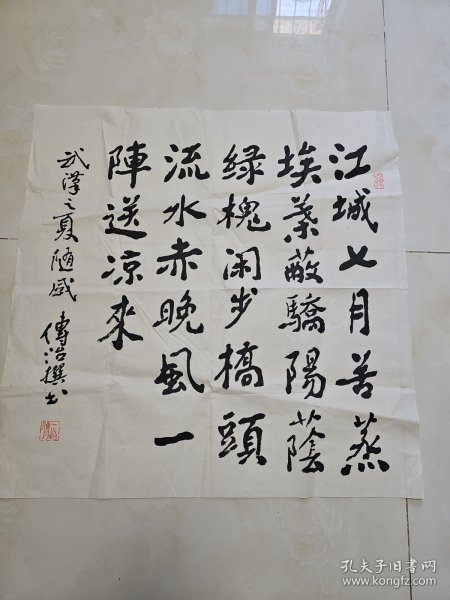 江城七月苦蒸
埃葉蔽驕陽蔭
緑槐闲步橋頭
流水赤晚風一
陣送凉來
武漢之夏随感 傳治撰书
孔夫子旧书网
www.kongfz.com